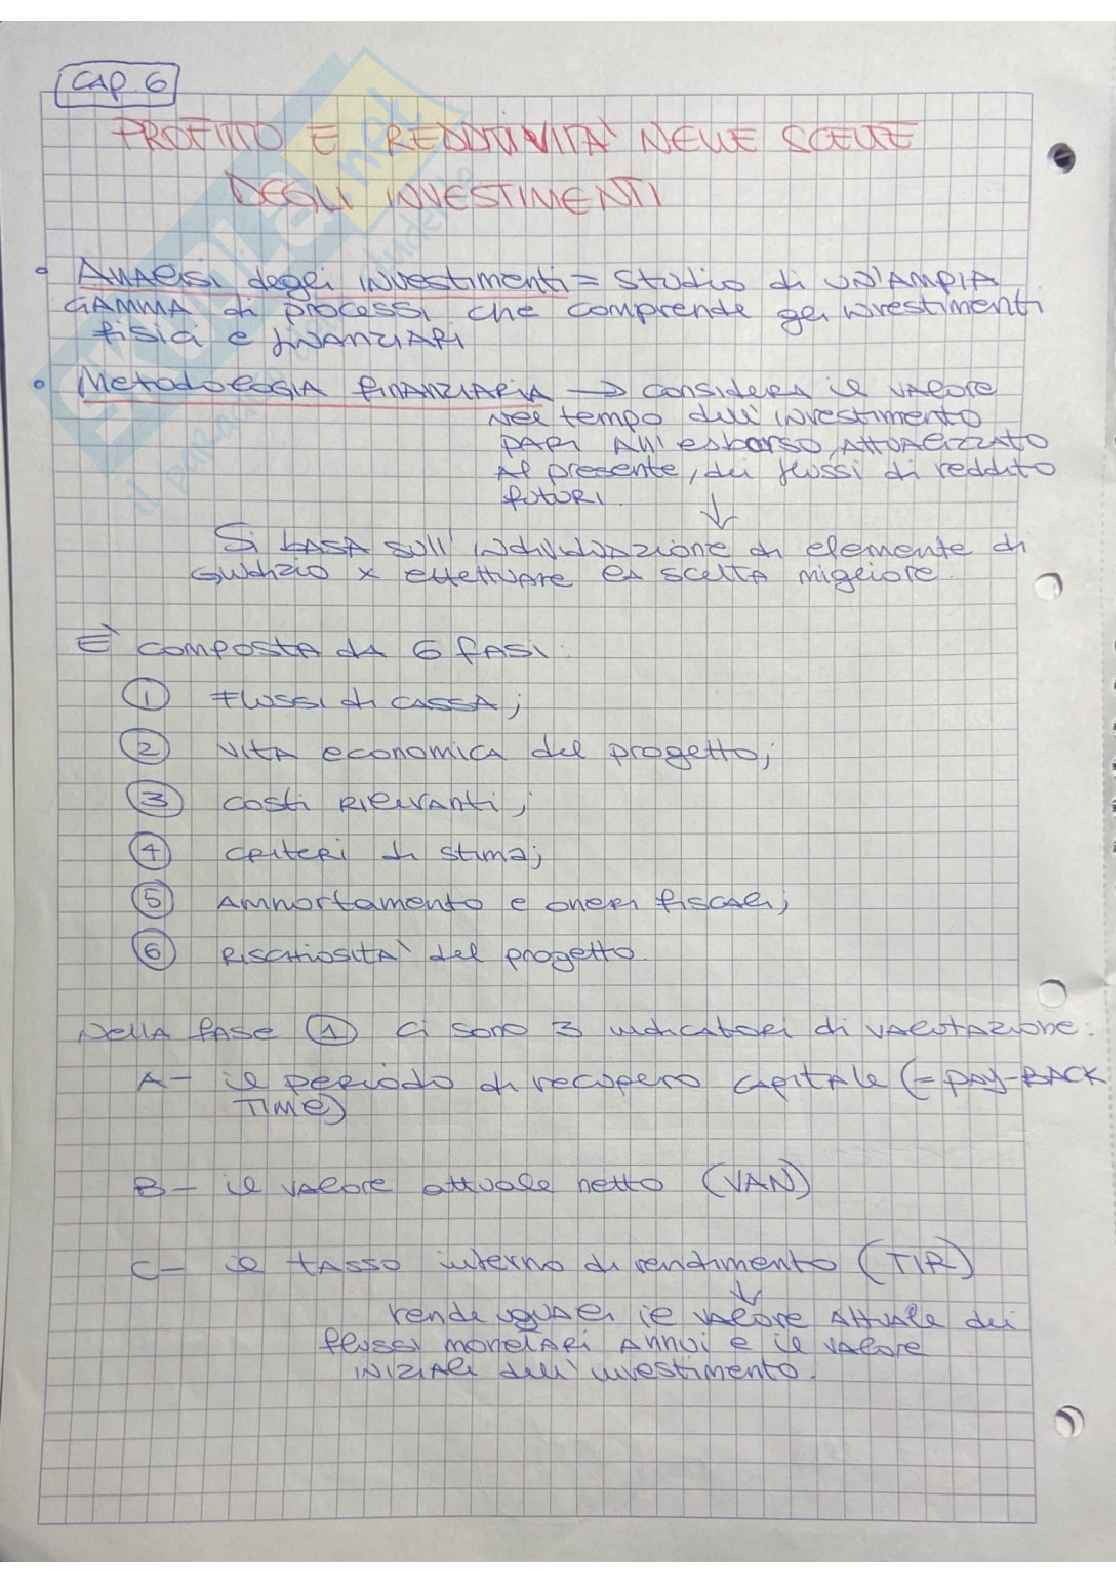 CAP. 6
PROFITTO E REDDITIVITÀ NELLE SCELTE
DEGLI INVESTIMENTI
Analisi degli investimenti = studio di un'ampia
gamma di processi che comprende gli investimenti
fisici e finanziari
Metodologia finanziaria → considera il valore
nel tempo dell'investimento
pari all'esborso, attualizzato
al presente, dei flussi di reddito
futuri.
↓
Si basa sull'individuazione di elemente di
giudizio x effettuare la scelta migliore.
È composta da 6 fasi:
1 Flussi di cassa;
2 vita economica del progetto;
3 costi rilevanti;
4 criteri di stima;
5 Ammortamento e oneri fiscali;
6 Rischiosità del progetto.
Nella fase 1 ci sono 3 indicatori di valutazione:
A- il periodo di recupero capitale (= PAY-BACK
TIME)
B- il valore attuale netto (VAN)
C- il tasso interno di rendimento (TIR)
↓
rende uguali il valore attuale dei
flussi monetari annui e il valore
iniziale dell'investimento.